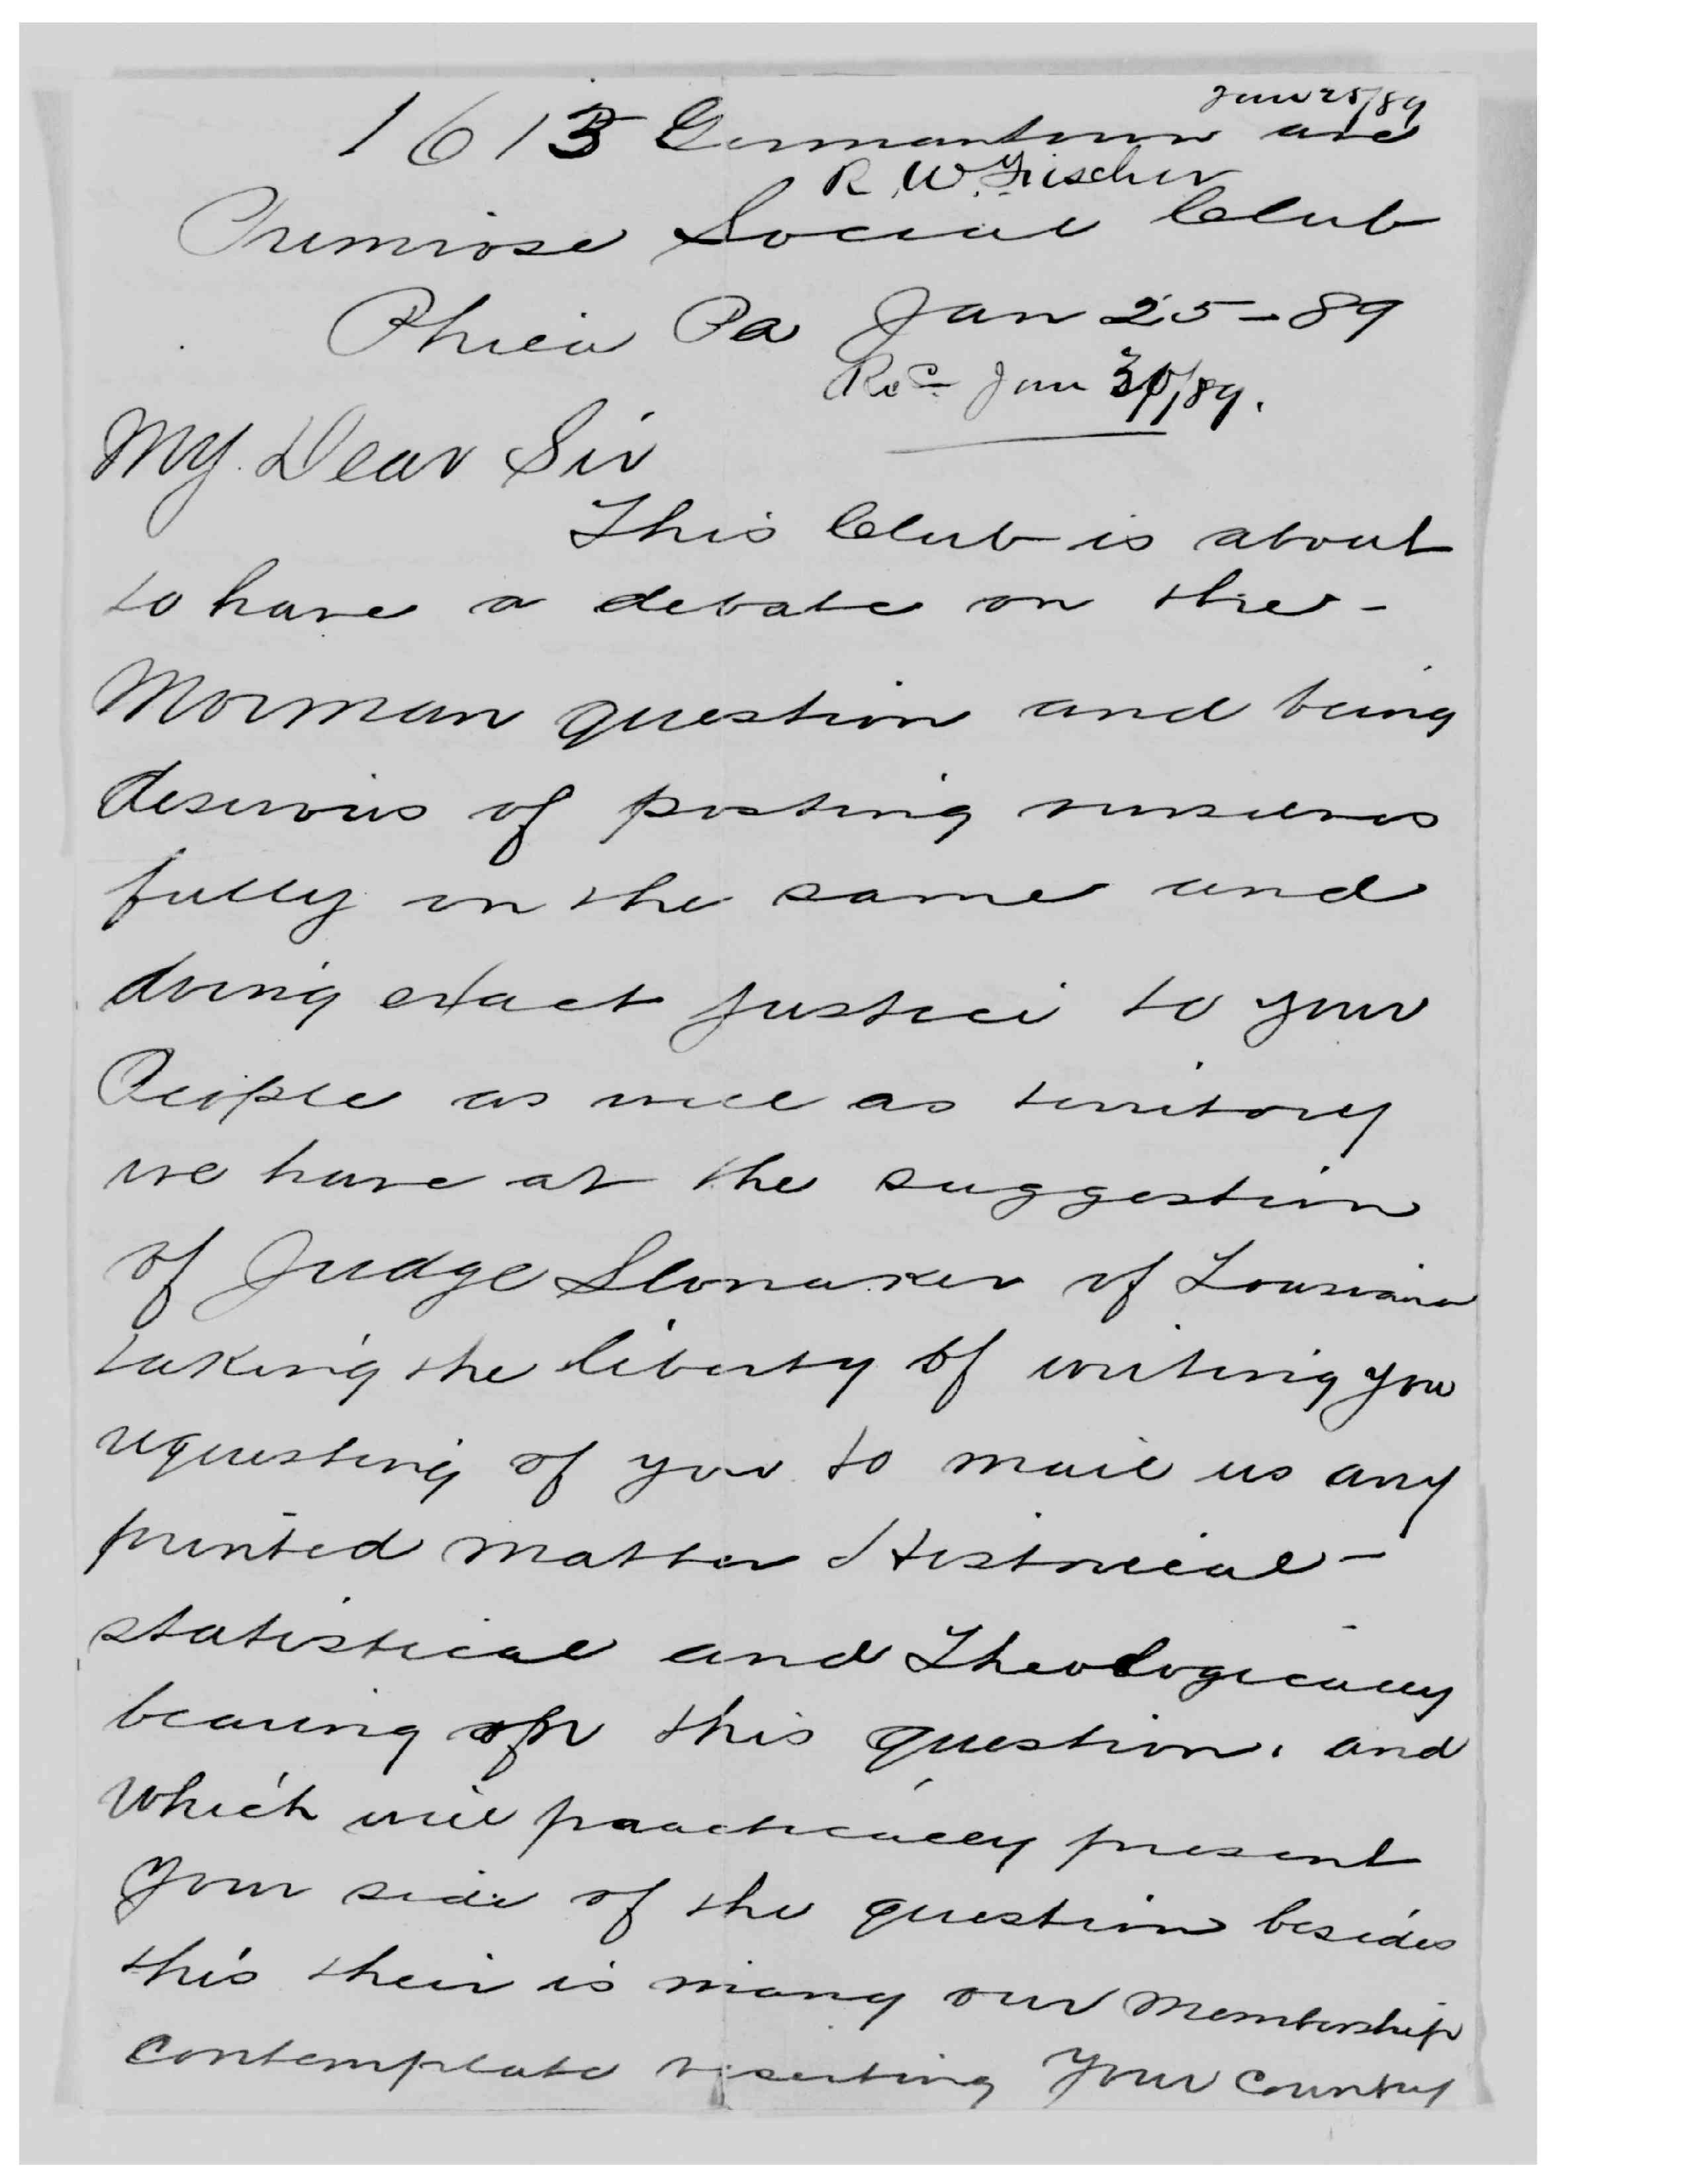 Jan 25/89
1613 Germantown ave
R. W. Fischer
Primrose Social Club
Phila Pa Jan 25-89
Rec Jan 30/89.
My Dear Sir
This Club is about
to have a debate on the-
Morman question and being
desirous of posting ourselves
fully on the same and
doing exact justice to your
People as well as territory
we have at the suggestion
of Judge Slonaker of Lousiana
taking the liberty of writing you
requesting of you to mail us any
printed matter Historical-
statistical and Theologically
bearing on this question. and
which will practically present
your side of the question besides
this their is many our membership
contemplate viseting your country